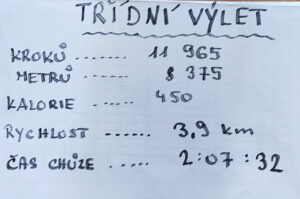 TŘÍDNÍ VÝLET
KROKŮ ....... 11 965
METRŮ ....... 8 375
KALORIE ..... 450
RYCHLOST ...... 3,9 km
ČAS CHŮZE ..... 2:07:32